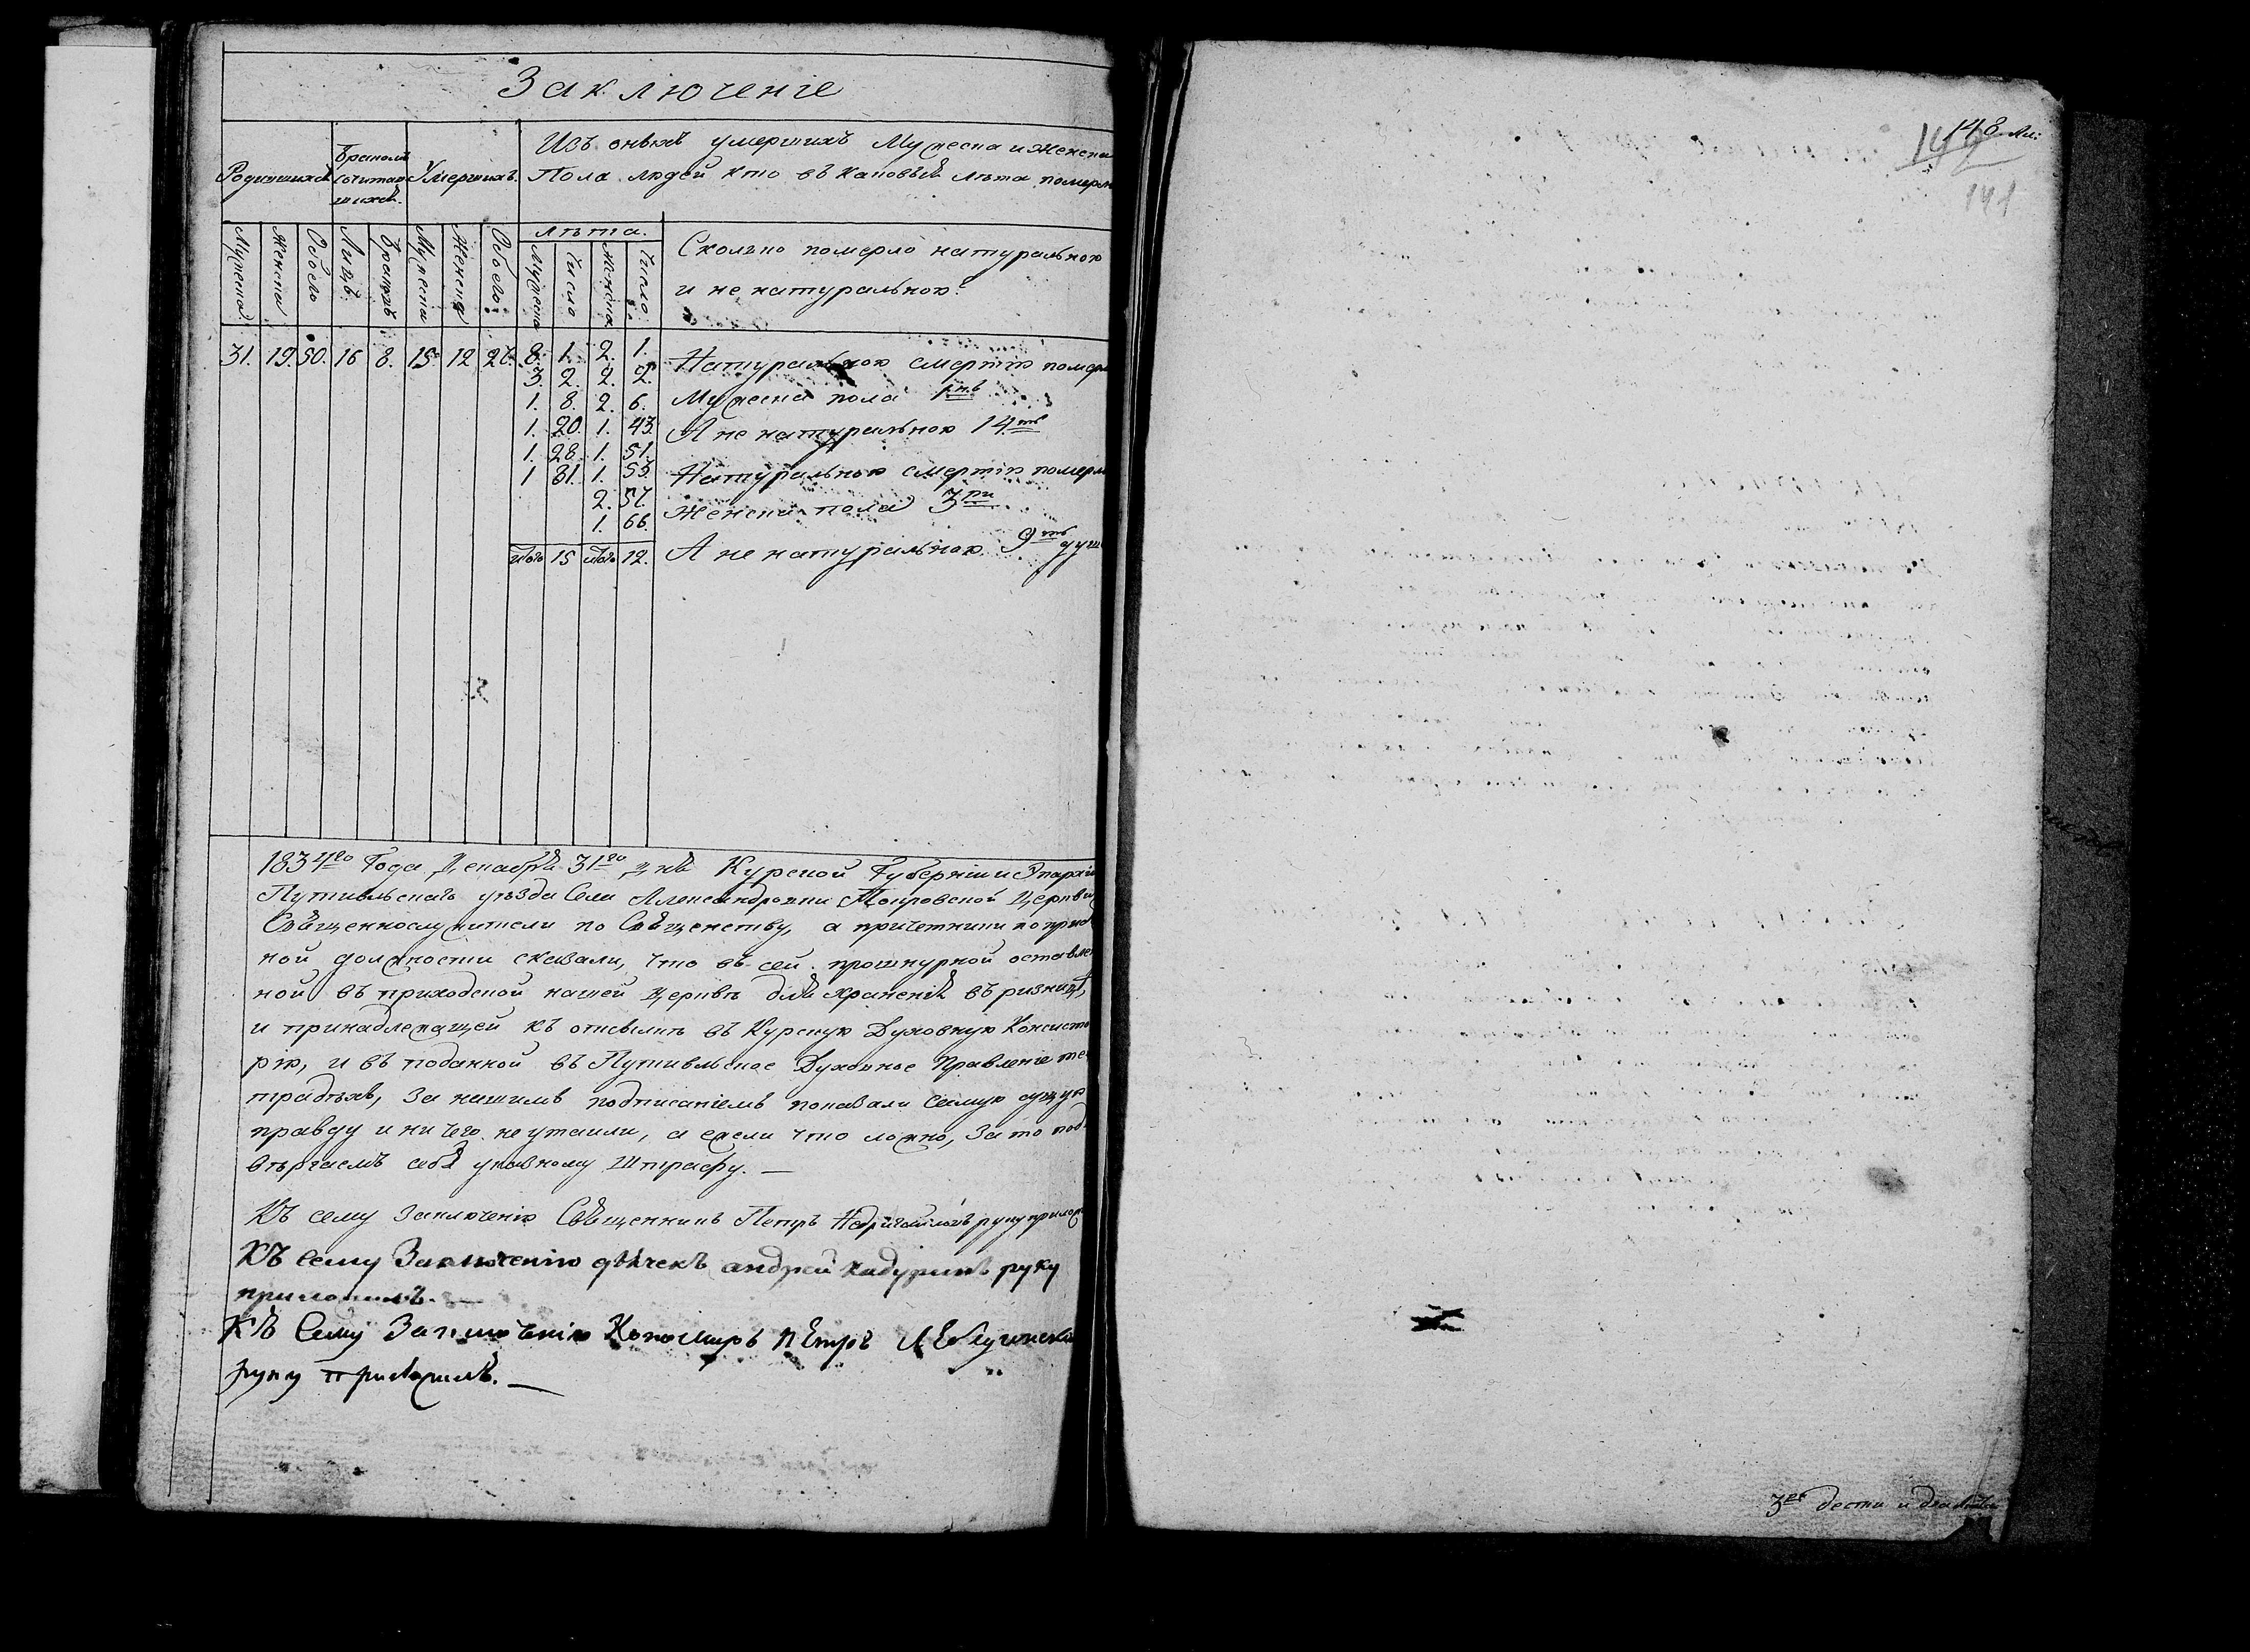 Заключенiе
Родившихся
Бракомъ сочитавшихся.
Умершихъ.
Изъ оныхъ умершихъ Мужеска и Женска
Пола людей кто въ каковыя лѣта померли
Мужеска
Женска
Обоего
Лицъ.
Браковъ
Мужеска
Женска
Обоего
лѣта.
Мужеска
Число
Женска
Число
Сколько померло натуральною
и не натуральною?
31. 19. 50. 16 8. 15 12 8. 1. 2. 1. Натуральною смертiю померло
3. 2. 2. 2. Мужеска пола
1. 8. 2. 6.
1. 20. 1. 43. А не натуральною 14ть
1. 28. 1. 51.
1 81. 1. 55. Натуральною смертiю померло
2. 57. Женска пола 3ри
1. 66.
Итого 15 Итого 12. А не натуральною 9ть душ
1834го Года Декабря 31го дня Курской Губернiи и Эпархiи
Путивльскаго уѣзда Села Александровки Покровской Церкви
Священнослужители по Священству, а причетники по
ной должности сказали, что въ сей прошнурной оставлен
ной въ приходской нашей Церквѣ для храненiя въ ризницѣ,
и принадлежащей къ отсылкѣ въ Курскую Духовную Консисто
рiю, и въ поданной въ Путивльское Духовное Правленiе те
традяхъ, за нашимъ подписанiемъ показали самую сущую
правду и ничего не утаили, а ежели что ложно, за то под
вѣргаемъ себя указному Штрафу. —
Къ сему заключенiю Священникъ Петръ руку приложилъ
Къ сему Заключенiю дьячекъ андрей руку
приложилъ. —
Къ Сему Заключенiю Пономарь пЕтръ
руку приложилъ. —
148 ли:
141
3ри дести и два листа